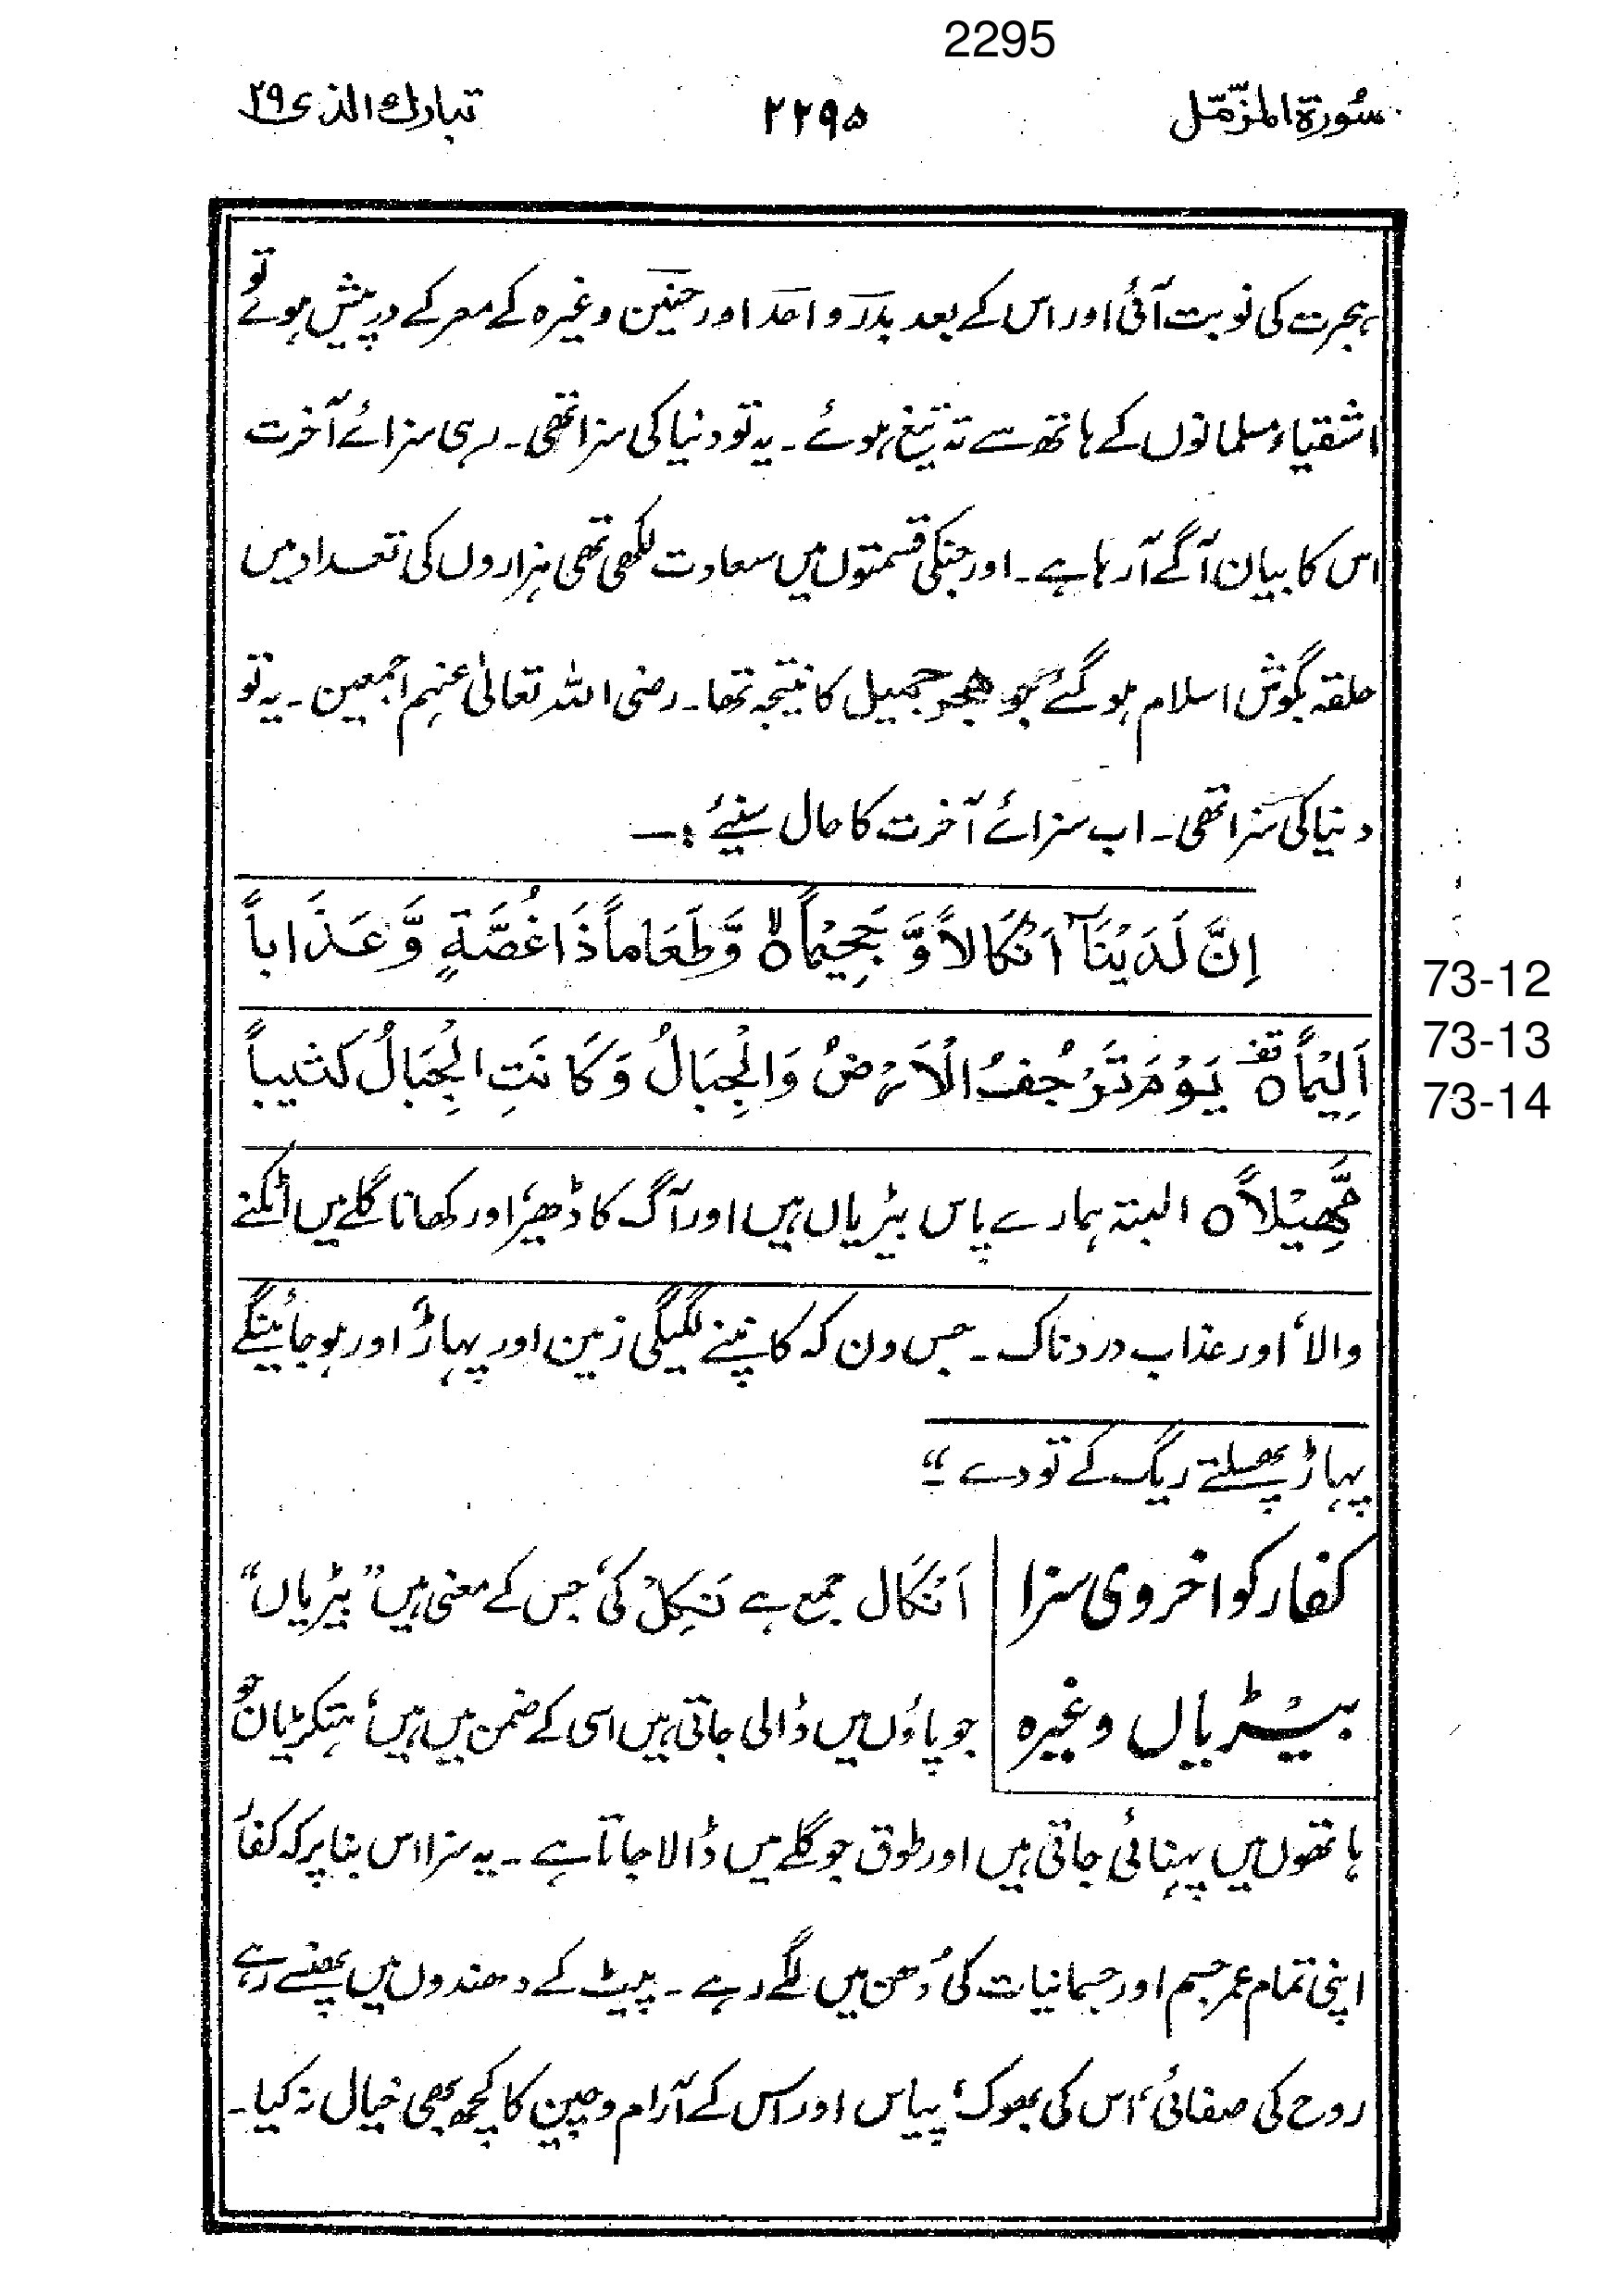 2295
سُورۃ المزّمّل ۲۲۹۵ تبارك الذی ۲۹
ہجرت کی نوبت آئی اور اس کے بعد بدر و احد اور حنین وغیرہ کے معرکے درپیش ہوئے تو
اشقیاء مسلمانوں کے ہاتھ سے تہ تیغ ہوئے ۔ یہ تو دنیا کی سزا تھی ۔ رہی سزائے آخرت
اس کا بیان آگے آ رہا ہے ۔ اور جنکی قسمتوں میں سعادت لکھی تھی ہزاروں کی تعداد میں
حلقہ بگوش اسلام ہو گئے جو ھجر جمیل کا نتیجہ تھا ۔ رضی اللہ تعالیٰ عنہم اجمعین ۔ یہ تو
دنیا کی سزا تھی ۔ اب سزائے آخرت کا حال سنیئے :—
اِنَّ لَدَيْنَآ اَنْكَالاً وَّ جَحِيْماً ۙ وَّ طَعَاماً ذَا غُصَّةٍ وَّ عَذَاباً
73-12
اَلِيْماً ۟ۛ يَوْمَ تَرْجُفُ الْاَرْضُ وَالْجِبَالُ وَ كَانَتِ الْجِبَالُ كَثِيباً
73-13
73-14
مَّهِيْلاً ۟ البتہ ہمارے پاس بیڑیاں ہیں اور آگ کا ڈھیر، اور کھانا گلے میں اٹکنے
والا، اور عذاب دردناک ۔ جس دن کہ کانپنے لگیگی زمین اور پہاڑ، اور ہو جائینگے
پہاڑ پھسلتے ریگ کے تودے ۔“
کفار کو اخروی سزا اَنْکَال جمع ہے نَنِکِلْ کی، جس کے معنی ہیں ”بیڑیاں“
بیڑیاں وغیرہ جو پاؤں میں ڈالی جاتی ہیں اسی کے ضمن میں ہیں، ہتکڑیاں جو
ہاتھوں میں پہنائی جاتی ہیں اور طوق جو گلے میں ڈالا جاتا ہے ۔ یہ سزا اس بنا پر کہ کفار
اپنی تمام عمر جسم اور جسمانیات کی دُھن میں لگے رہے ۔ پیٹ کے دھندوں میں پھنسے رہے
روح کی صفائی، اس کی بھوک، پیاس اور اس کے آرام و چین کا کچھ بھی خیال نہ کیا ۔